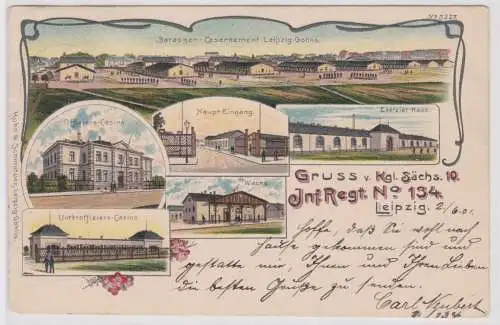 No 5227.
Baracken-Casernement Leipzig-Gohlis.
Officiers-Casino
Haupt-Eingang.
Exerzier-Haus.
Wache
Unterofficiers-Casino
Gruss v. Kgl. Sächs. 10.
Inf. Regt. No 134.
Leipzig. 2/6.01.
Hoffe, daß Sie wohl nach
Hause gekommen sind und
gestatte mir, Ihnen und Ihren Lieben
die besten Grüße zu senden.
Carl Neubert
134
Leipzig-Gohlis.